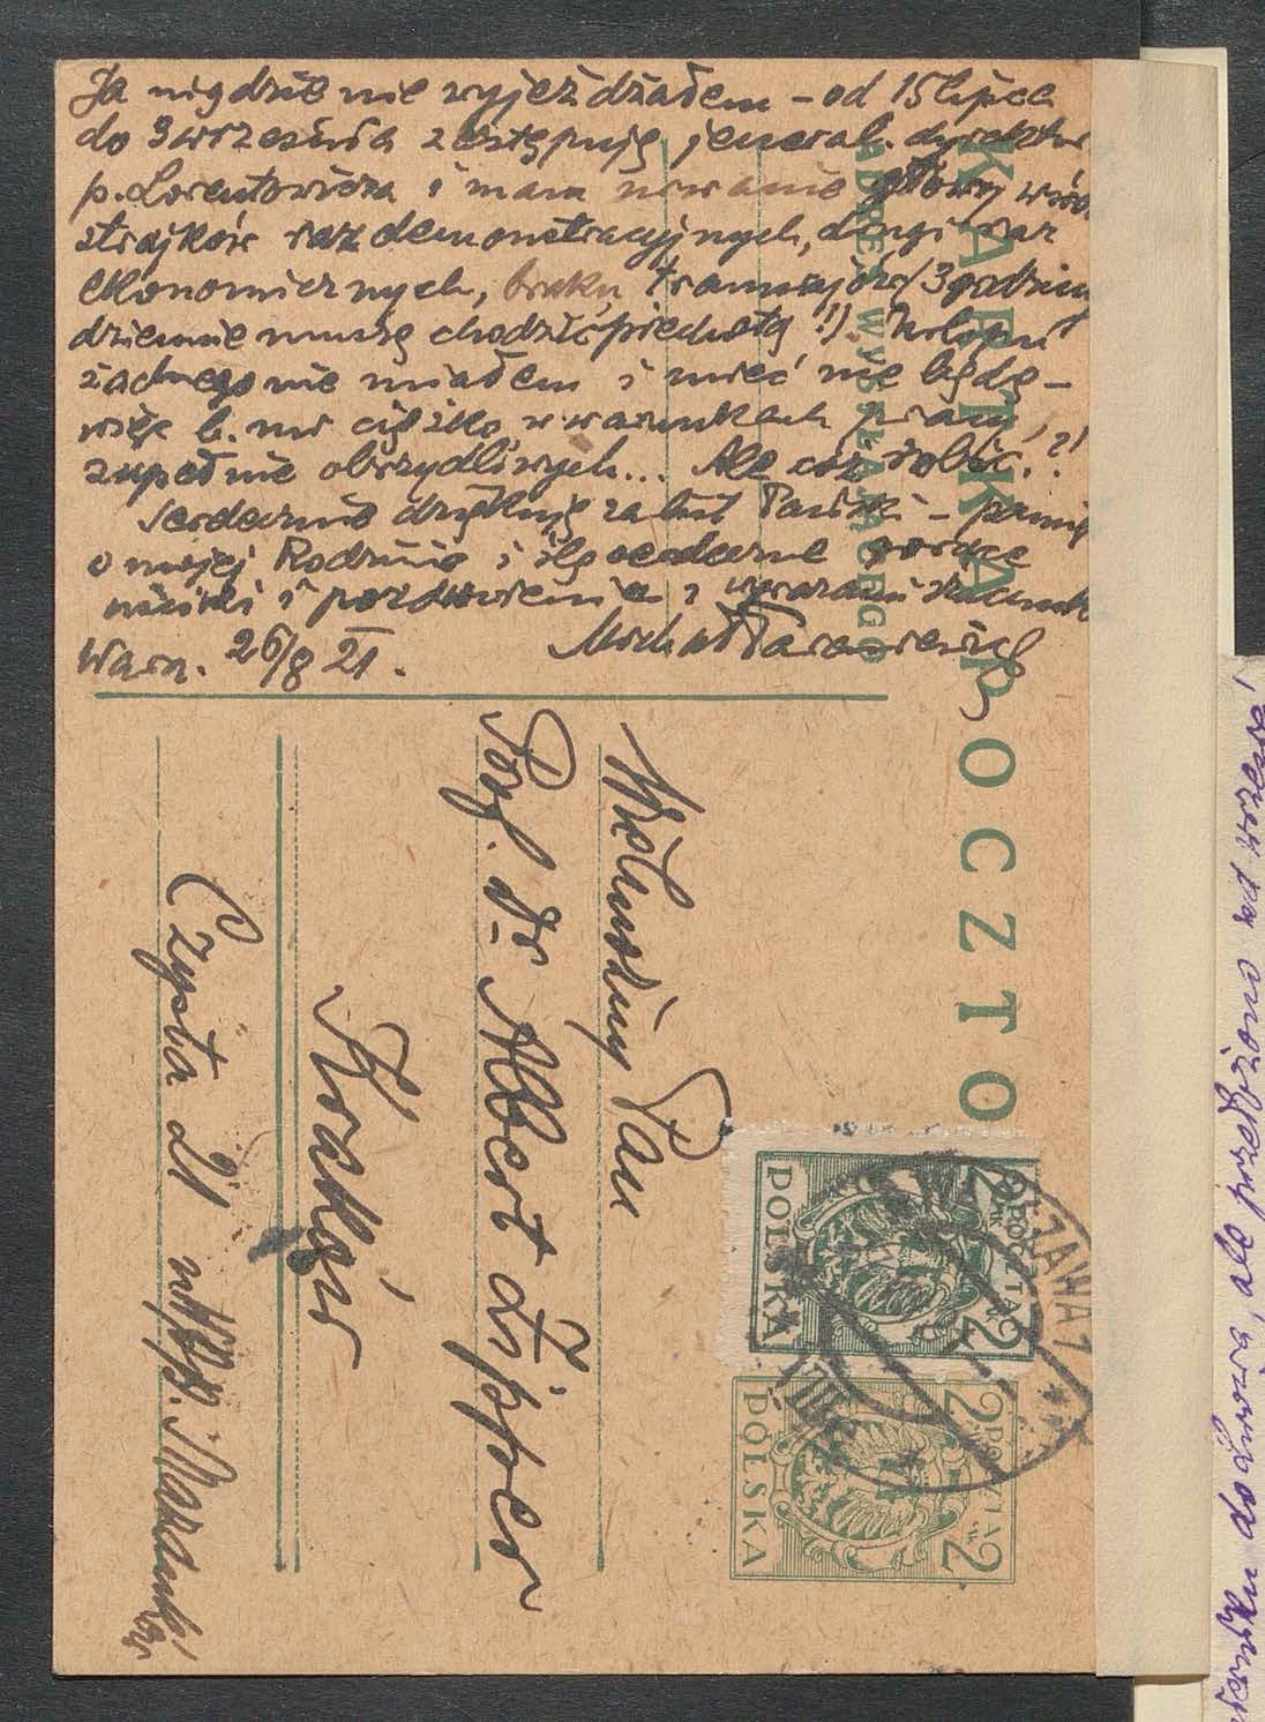 Ja nigdzie nie wyjeżdżałem – od 15 lipca
do 3 września zastępuję jeneral. dyrektor
p. Lorentowicza i mam urwanie głowy wśró
strajków raz demonstracyjnych, drugi raz
ekonomicznych, braku tramwajów (3 godziny
dziennie muszę chodzić piechotą!) Urlopu
żadnego nie miałem i mieć nie będę –
więc b. mi ciężko w warunkach pracy
zupełnie obrzydliwych... Ale cóż robić.?!
Serdecznie dziękuję za list Pański –
o mojej Rodzinie i ślę serdeczne
uściski i pozdrowienia i wyrazami szacunk
Michał Tarasiewicz
Warsz. 26/8 21.
KARTKA POCZTO
ADRES WYSYŁAJĄCEGO
Wielmożny Pan
Prof. Dr Albert Zipper
Kraków
Czysta 21
POCZTA
2 2
POLSKA
POCZTA
2 2
POLSKA
ZAWA 1
VIII
ale przedłużono na wrzesień,